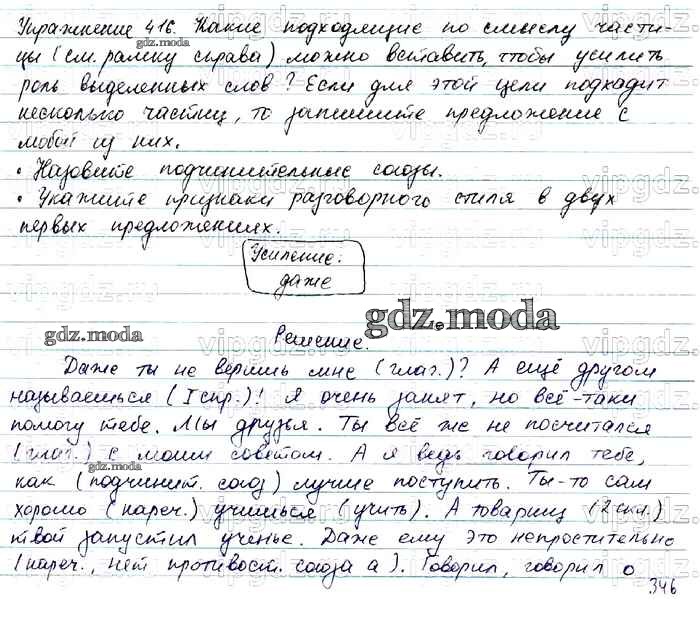 Упражнение 416. Какие подходящие по смыслу части-
gdz.moda
цы (см. рамку справа) можно вставить, чтобы усилить
роль выделенных слов? Если для этой цели подходит
несколько частиц, то запишите предложение с
любой из них.
• Назовите подчинительные союзы.
• Укажите признаки разговорного стиля в двух
первых предложениях.
Усиление:
даже
gdz.moda
gdz.moda
Решение.
Даже ты не веришь мне (глаг.)? А ещё другом
называешься (I спр.)! Я очень занят, но всё-таки
помогу тебе. Мы друзья. Ты всё же не посчитался
(глаг.) с моим советом. А я ведь говорил тебе,
gdz.moda
как (подчинит. союз) лучше поступить. Ты-то сам
хорошо (нареч.) учишься (учить). А товарищ (2 скл.)
твой запустил ученье. Даже ему это непростительно
(нареч., нет противост. союза а). Говорил, говорил о
346